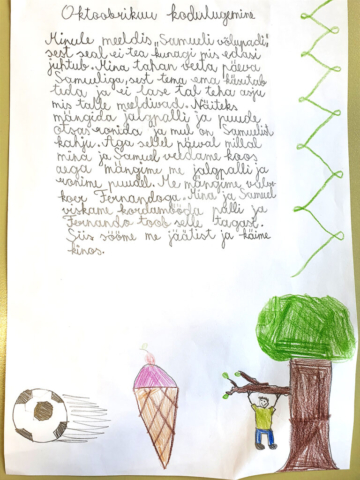 Oktoobrikuu kodulugemine
Minule meeldis „Samueli võlupadi",
sest seal ei tea kunagi mis edasi
juhtub. Mina tahan veeta päeva
Samueliga, sest tema ema käsutab
teda ja ei lase tal teha asju
mis talle meeldivad. Näiteks
mängida jalgpalli ja puude
otsas ronida ja mul on Samuelist
kahju. Aga sellel päeval millal
mina ja Samuel veedame koos
aega mängime me jalgpalli ja
ronime puudel. Me mängime
koer Fernandoga. Mina ja Samuel
viskame kordamööda palli ja
Fernando toob selle tagasi.
Siis sööme me jäätist ja käime
kinos.